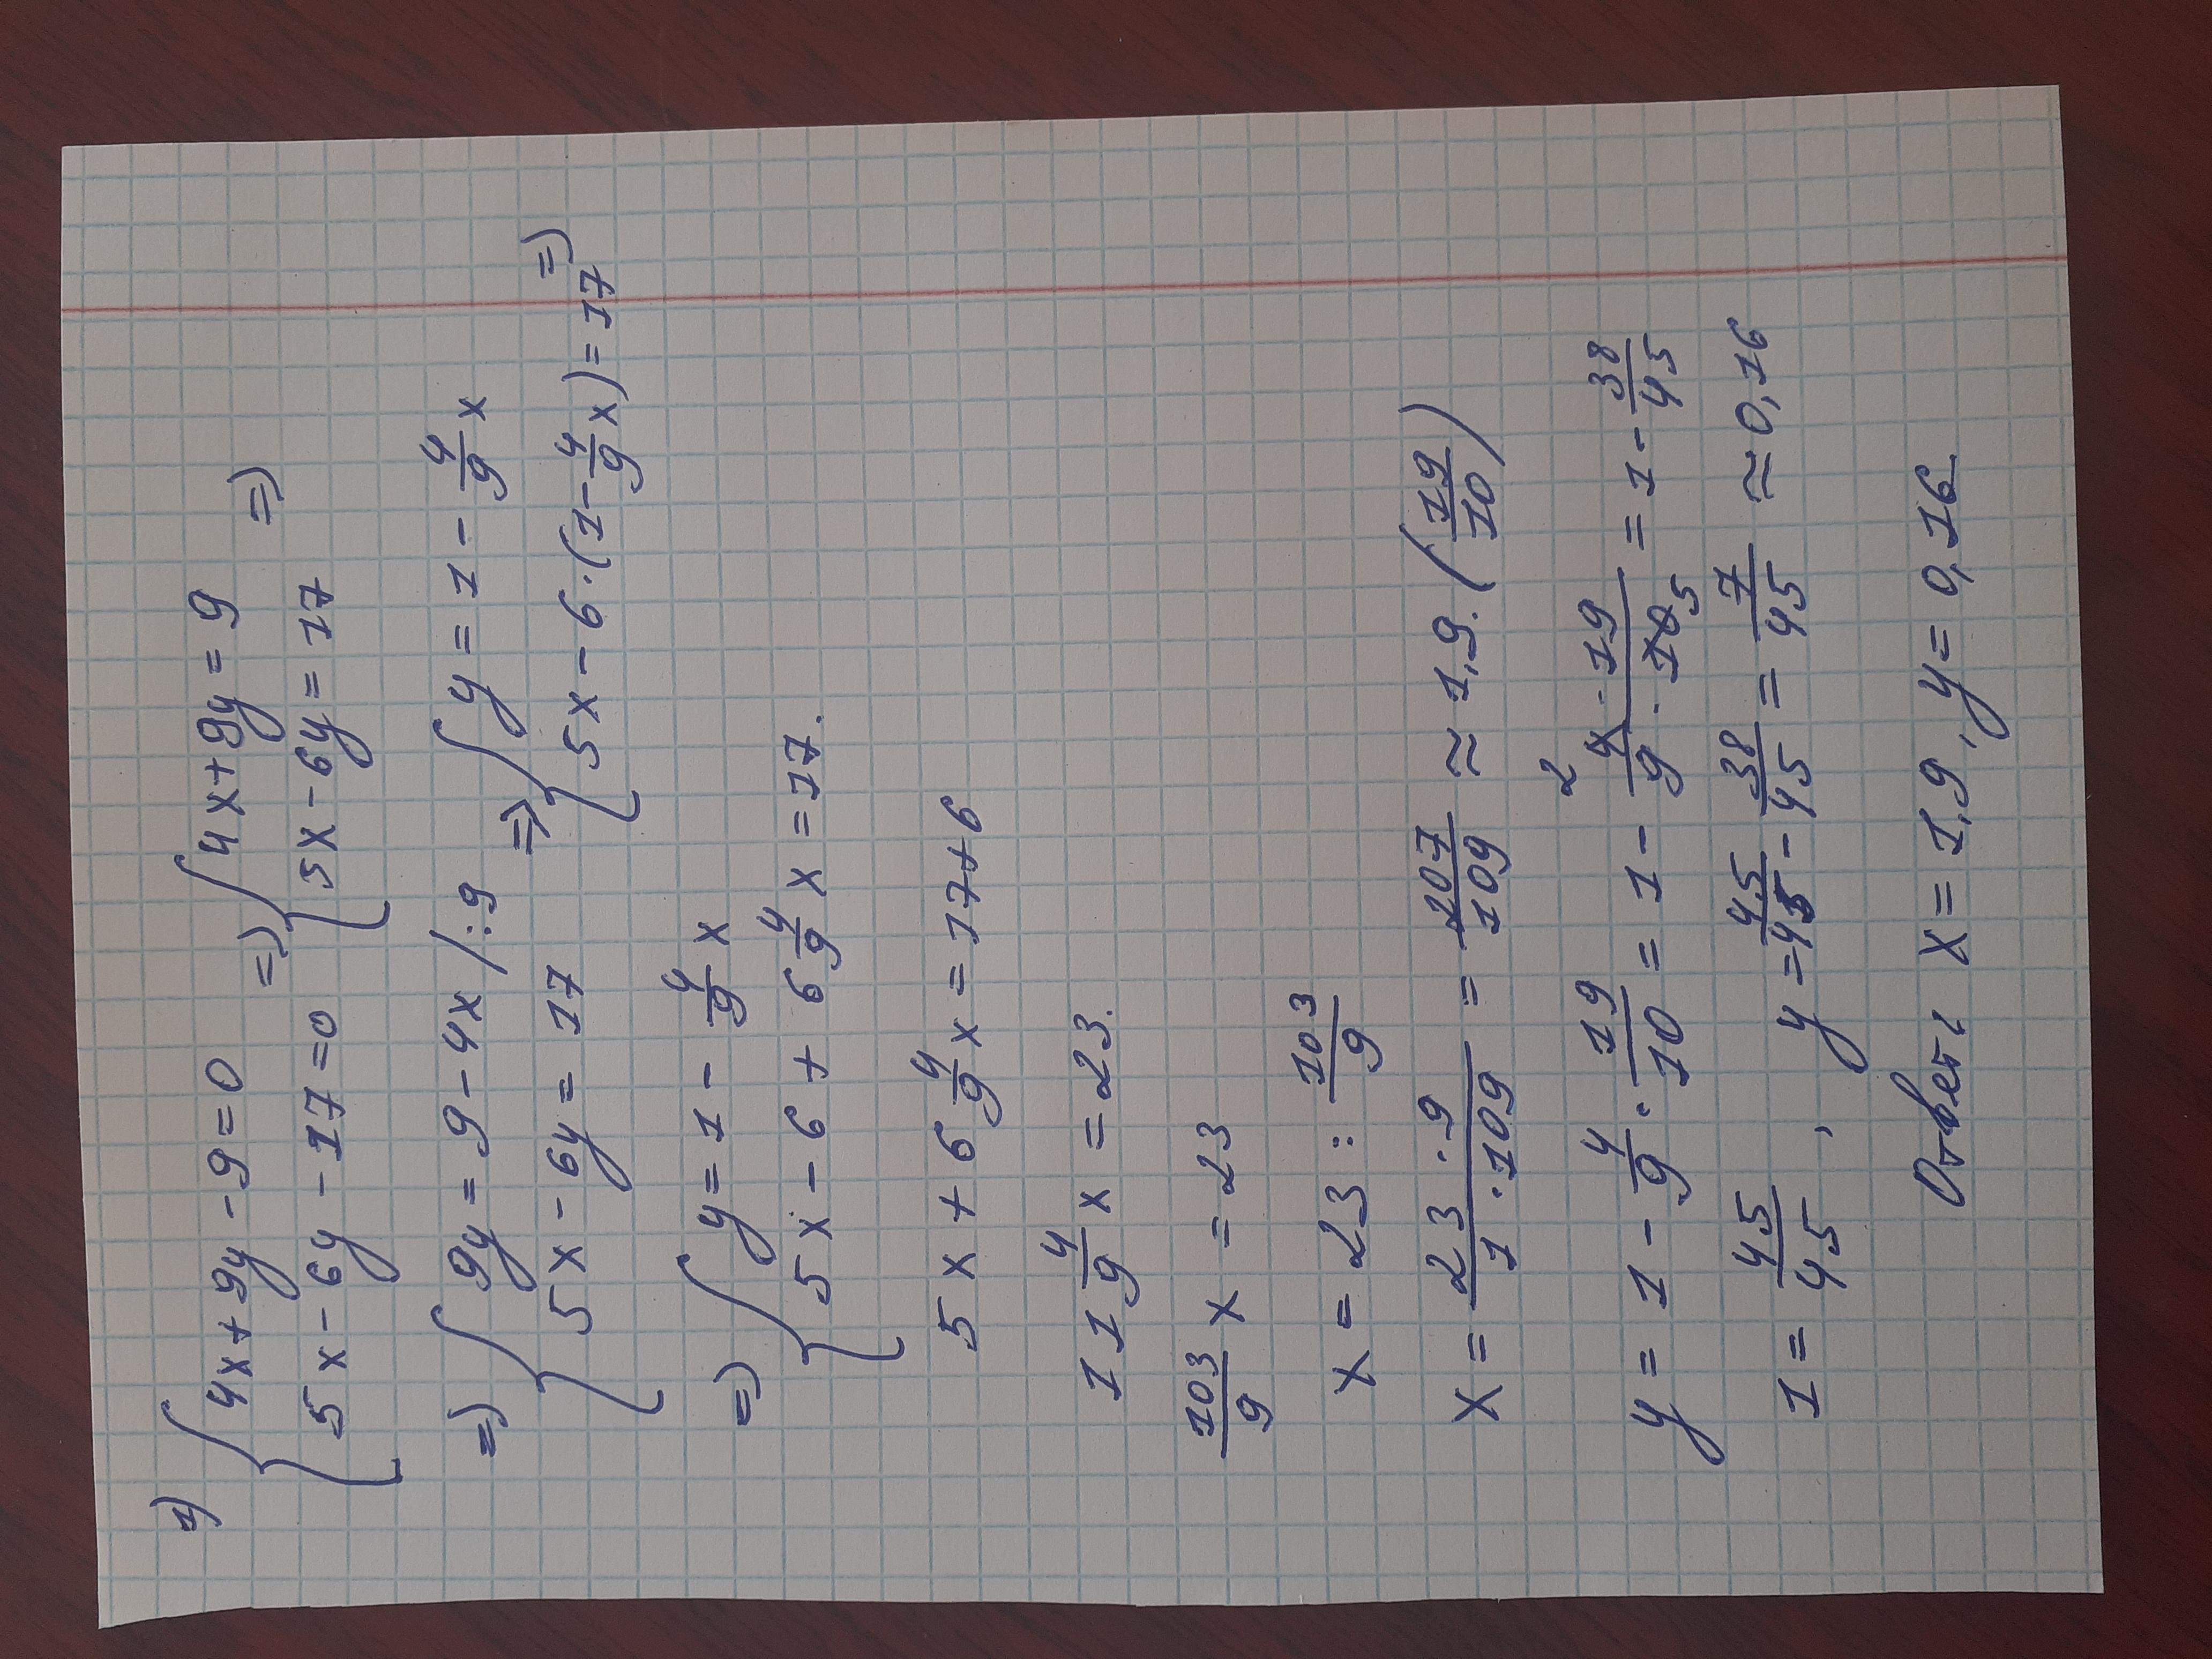 1) { 4x + 9y - 9 = 0 => { 4x + 9y = 9 =>
5x - 6y - 17 = 0 5x - 6y = 17
=> { 9y = 9 - 4x /:9 => { y = 1 - 4/9 x
5x - 6y = 17 5x - 6·(1 - 4/9 x) = 17 =>
=> { y = 1 - 4/9 x
5x - 6 + 6 4/9 x = 17.
5x + 6 4/9 x = 17 + 6
11 4/9 x = 23.
103/9 x = 23
x = 23 : 103/9
x = 23·9/1·109 = 207/109 ≈ 1,9. (19/10)
y = 1 - 4/9 · 19/10 = 1 - 4 2·19/9·10 5 = 1 - 38/45
1 = 45/45 , y = 45/45 - 38/45 = 7/45 ≈ 0,16
Ответ: x = 1,9, y = 0,16